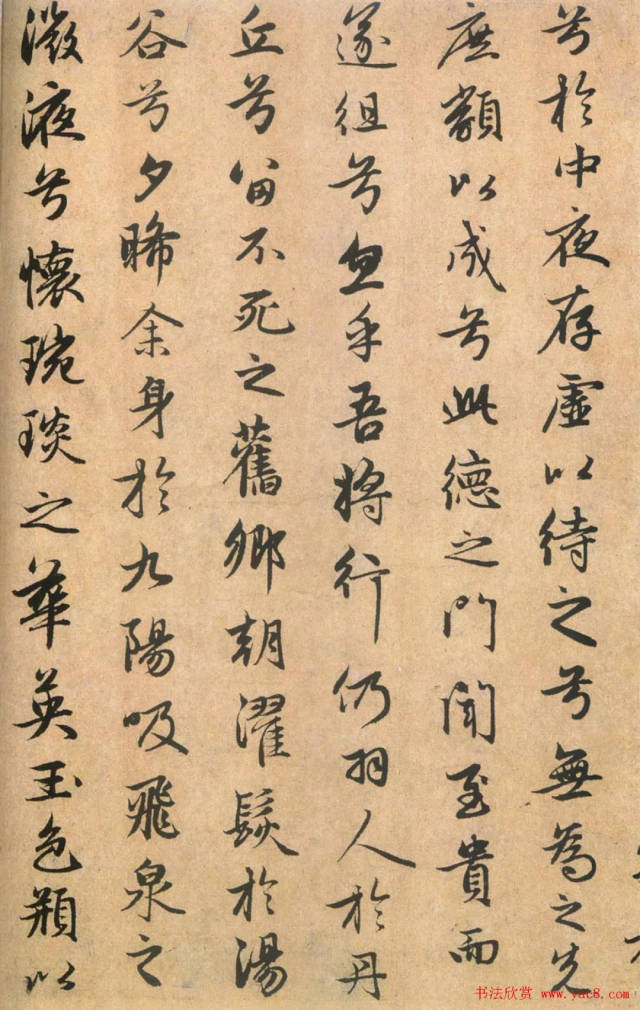 兮於中夜存虛以待之兮無為之先
庶類以成兮此德之門聞至貴而
遂徂兮忽乎吾將行仍羽人於丹
丘兮留不死之舊鄉朝濯髮於湯
谷兮夕晞余身於九陽吸飛泉之
微液兮懷琬琰之華英玉色頩以
书法欣赏 www.yac8.com